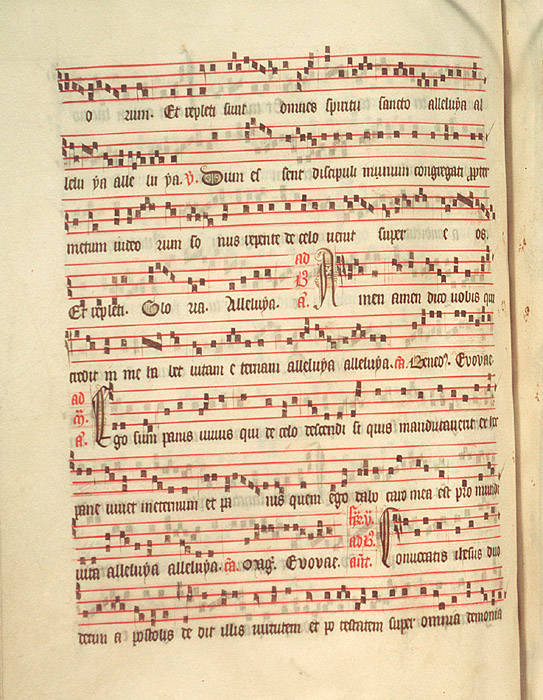 o rum. Et repleti sunt omnes spiritu sancto alleluya al
lelu ya alle lu ya. V. Dum es sent discipuli in unum congregati propter
metum iudeo rum so nus repente de celo venit super e os.
Et repleti. Glo ria. Alleluya. ad B a. Amen amen dico vobis qui
credit in me ha bet vitam e ternam alleluya alleluya. ca. Bened. Evovae.
ad m. a. Ego sum panis vivus qui de celo descendi si quis manducaverit ex hoc
pane vivet ineternum et pa nis quem ego dabo caro mea est pro mundi
vita alleluya alleluya. ca. Mag. Evovae. ad B. ant. Convocatis ihesus duo
decim a postolis de dit illis virtutem et po testatem super omnia demonia